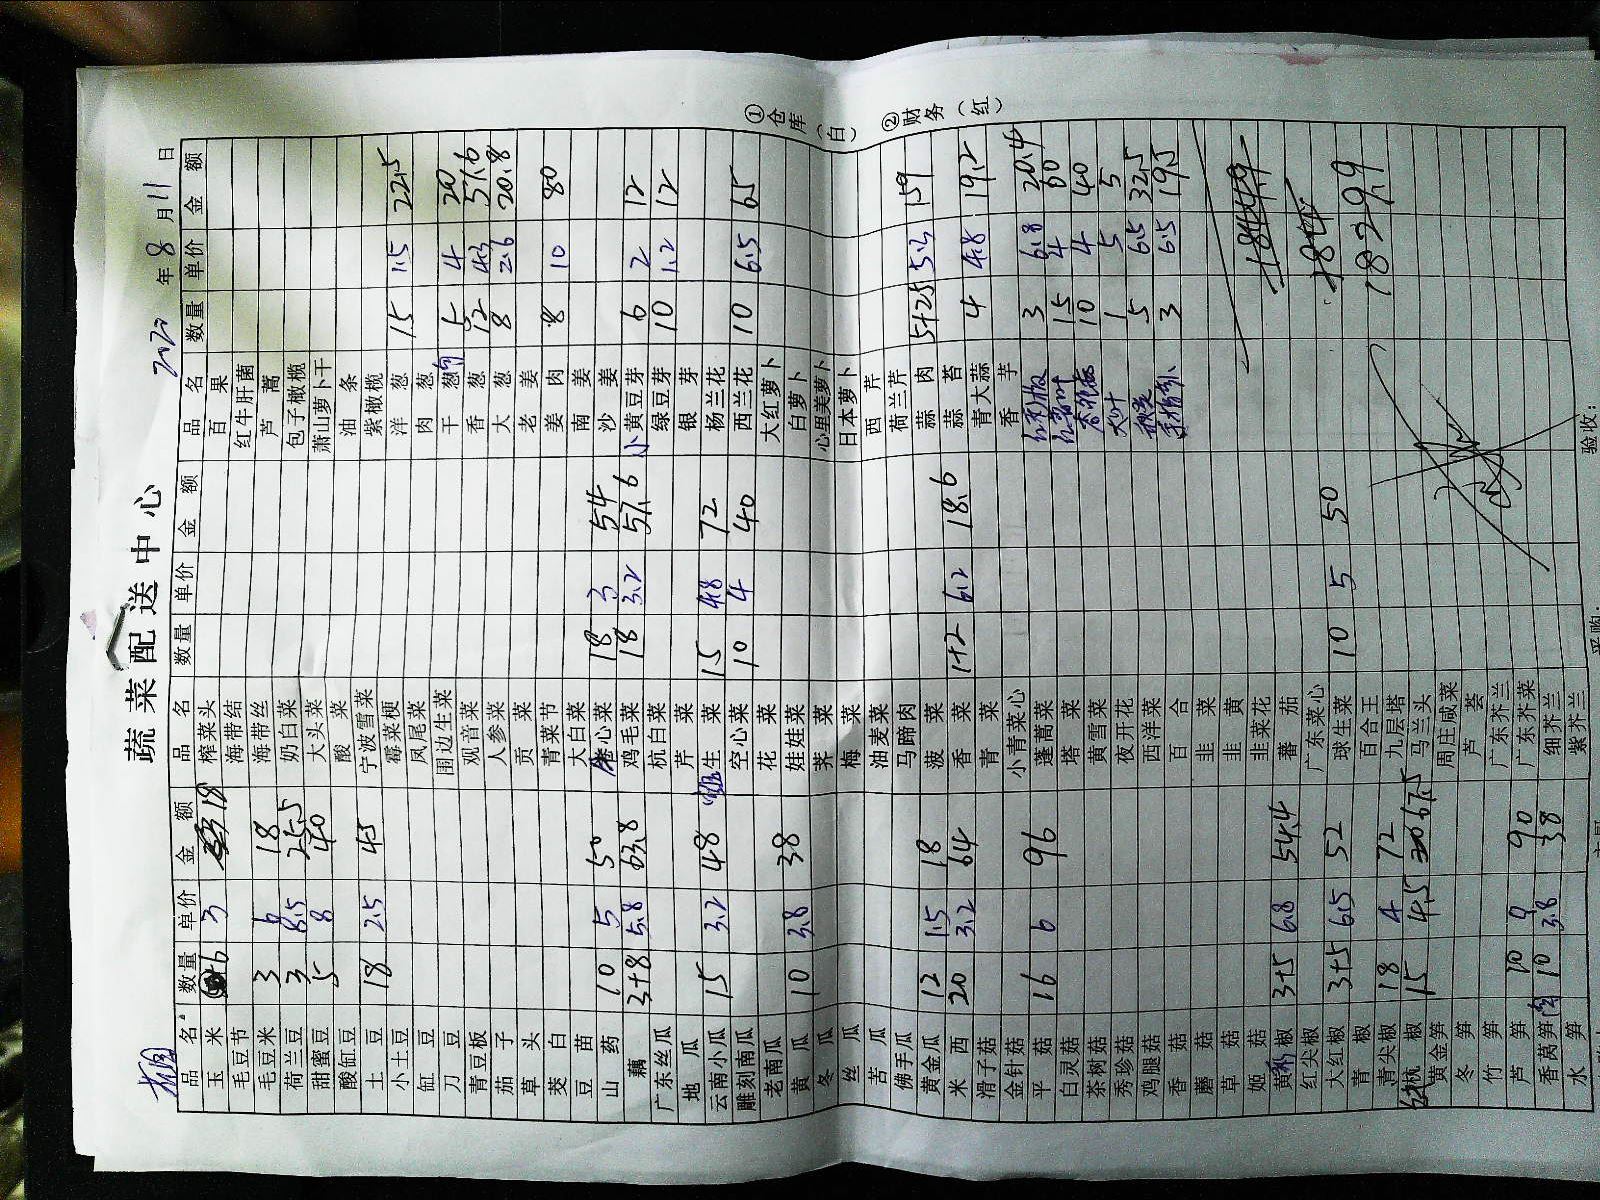 蔬菜配送中心
2020年8月11日
品名 数量 单价 金额 品名 数量 单价 金额 品名 数量 单价 金额
玉米 6 3 18 榨菜头 百果
毛豆节 海带结 红牛肝菌
毛豆米 3 6 18 海带丝 芦蒿
荷兰豆 3 8.5 25.5 奶白菜 包子橄榄
甜蜜豆 5 8 40 大头菜 萧山萝卜干
酸缸豆 酸菜 油条
土豆 18 2.5 45 宁波雪菜 紫橄榄
小土豆 霉菜梗 洋葱 15 1.5 22.5
缸豆 凤尾菜 肉葱
刀豆 围边生菜 干葱 5 4 20
青豆板 观音菜 香葱 12 4.3 51.6
茄子 人参菜 大葱 8 2.6 20.8
草头 贡菜 老姜
茭白 青菜节 姜肉 8 10 80
豆苗 大白菜 南姜
山药 10 5 50 卷心菜 18 3 54 沙姜
藕 3+8 5.8 63.8 鸡毛菜 18 3.2 57.6 小黄豆芽 6 2 12
广东丝瓜 杭白菜 绿豆芽 10 1.2 12
地瓜 芹菜 银芽
云南小瓜 15 3.2 48 生菜 15 4.8 72 杨兰花
雕刻南瓜 空心菜 10 4 40 西兰花 10 6.5 65
老南瓜 花菜 大红萝卜
黄瓜 10 3.8 38 娃娃菜 白萝卜
冬瓜 荠菜 心里美萝卜
丝瓜 梅菜 日本萝卜
苦瓜 油麦菜 西芹
佛手瓜 马蹄肉 荷兰芹
黄金瓜 12 1.5 18 菠菜 蒜肉 5+25 5.3 159
米西 20 3.2 64 香菜 1+2 6.2 18.6 蒜苔
滑子菇 青菜 青大蒜 4 4.8 19.2
金针菇 小青菜心 香芋
平菇 16 6 96 蓬蒿菜 3 6.8 20.4
白灵菇 塔菜 15 4 60
茶树菇 黄雪菜 10 4 40
秀珍菇 夜开花 大叶 1 5 5
鸡腿菇 西洋菜 秋葵 5 6.5 32.5
香菇 百合 3 6.5 19.5
蘑菇 韭菜
草菇 韭黄
姬菇 韭菜花
黄彩椒 3+5 6.8 54.4 蕃茄
红尖椒 广东菜心
大红椒 3+5 6.5 52 球生菜 10 5 50
青椒 百合王 1829.9
青尖椒 18 4 72 九层塔
杭椒 15 4.5 67.5 马兰头
黄金笋 周庄咸菜
冬笋 芦荟
竹笋 广东芥兰
芦笋 10 9 90 广东芥菜
香莴笋 10 3.8 38 细芥兰
水笋 紫芥兰
验收：
①仓库（白）
②财务（红）